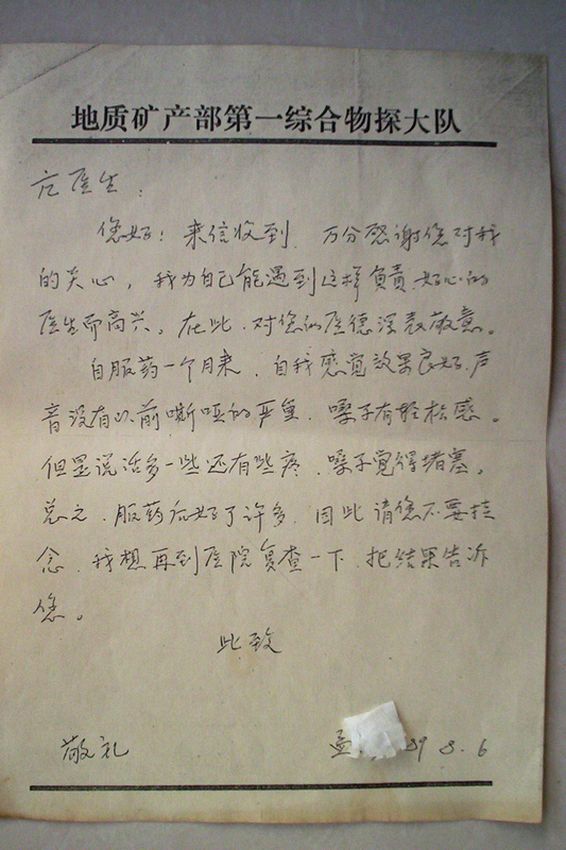 地质矿产部第一综合物探大队
亢医生：
您好！来信收到，万分感谢您对我
的关心，我为自己能遇到这样负责、好心的
医生而高兴，在此，对您的医德深表敬意。
自服药一个月来，自我感觉效果良好，声
音没有以前嘶哑的严重，嗓子有轻松感。
但是说话多一些还有些疼，嗓子觉得堵塞。
总之，服药后好了许多，因此请您不要挂
念，我想再到医院复查一下，把结果告诉
您。
此致
敬礼 孟 89 8.6